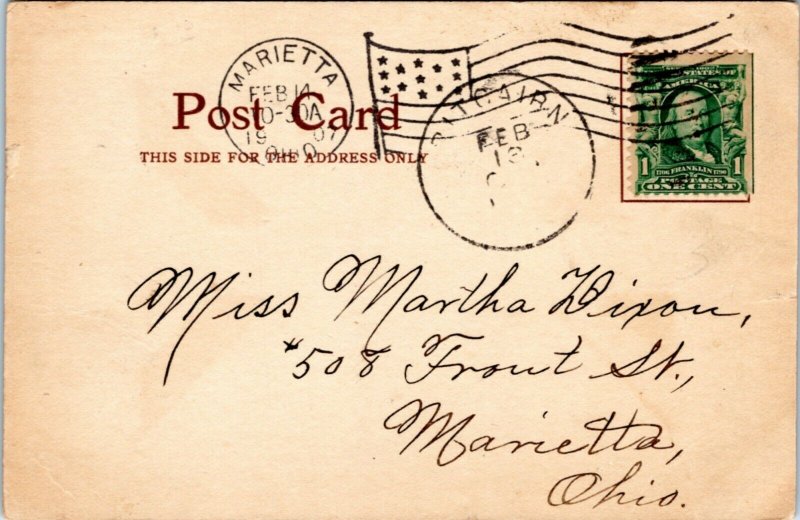 MARIETTA
FEB 14
10-30A
19 07
OHIO
Post Card
THIS SIDE FOR THE ADDRESS ONLY
PITCAIRN
FEB
13
STATES OF
AMERICA
1706 FRANKLIN 1790
1 POSTAGE 1
ONE CENT
Miss Martha Dixon,
#508 Front St.,
Marietta,
Ohio.